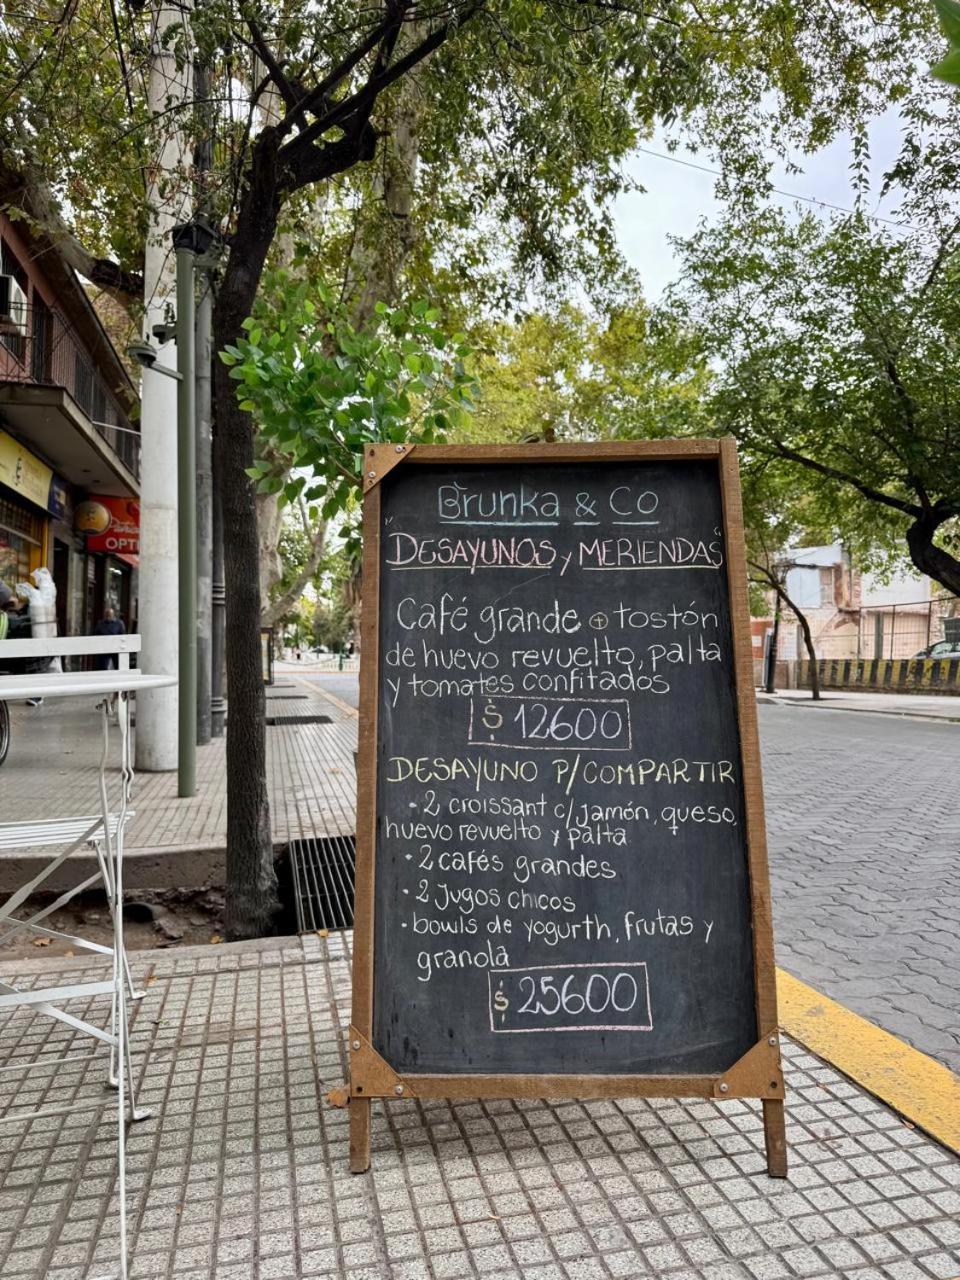 Brunka & Co
"DESAYUNOS y MERIENDAS"
Café grande + tostón
de huevo revuelto, palta
y tomates confitados
$ 12600
DESAYUNO P/COMPARTIR
• 2 croissant c/jamón, queso,
huevo revuelto y palta
• 2 cafés grandes
• 2 Jugos chicos
• bowls de yogurth, frutas y
granola
$ 25600
OPTI